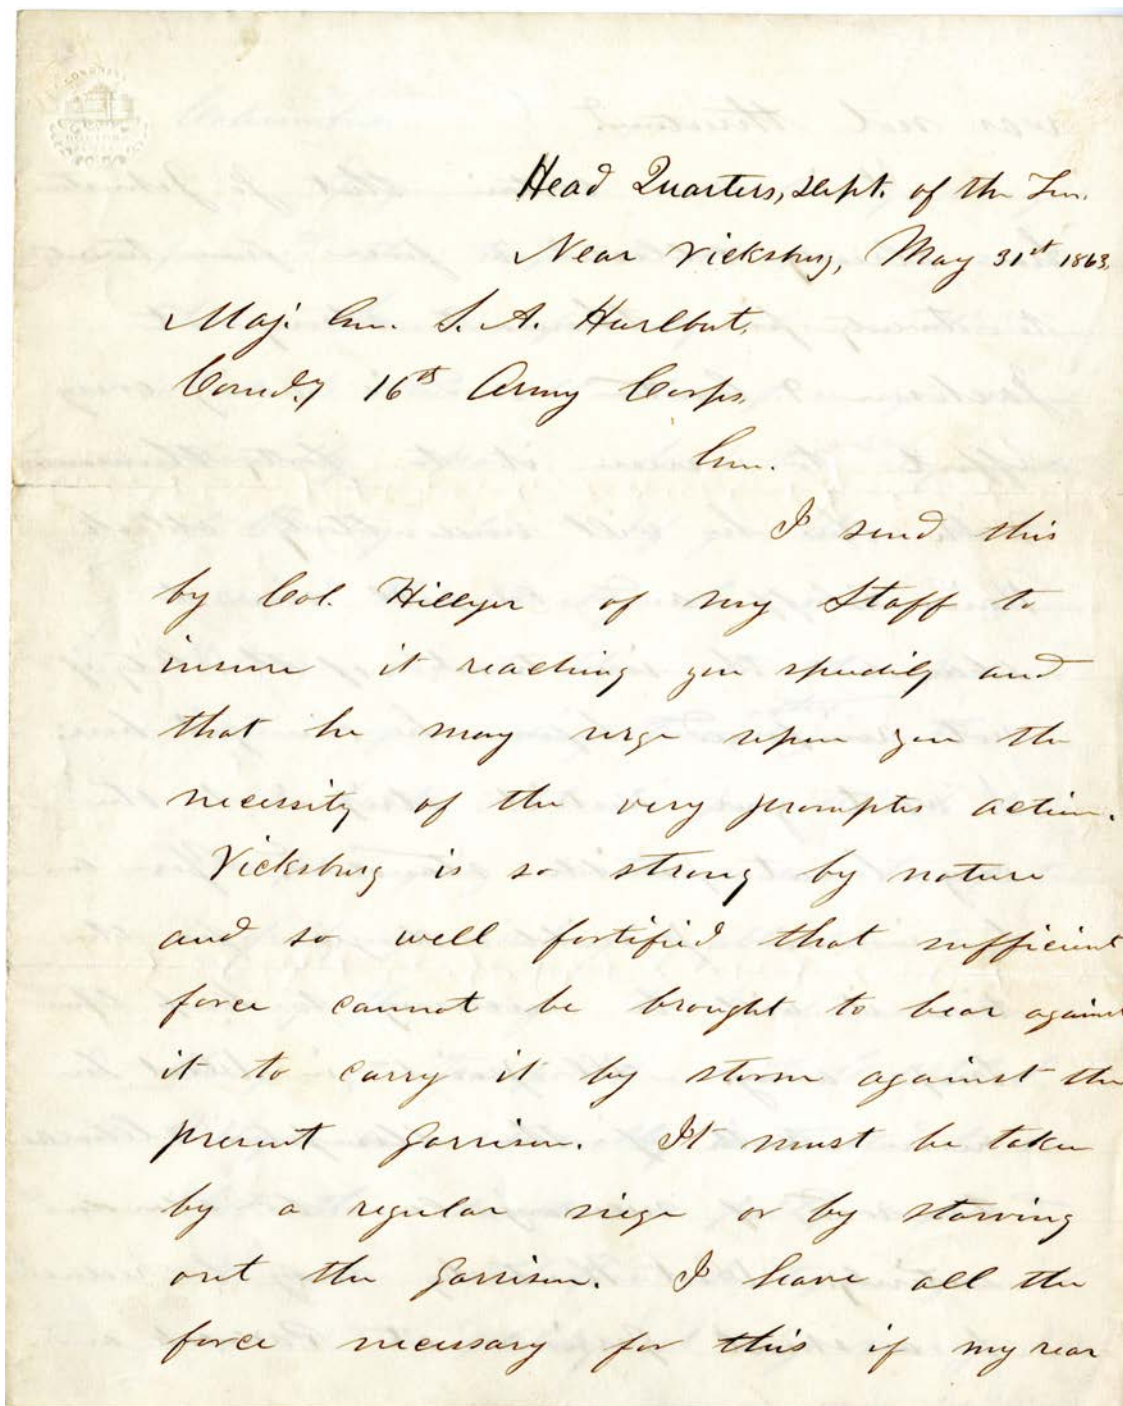 Head Quarters, Dept. of the Ten.
Near Vicksburg, May 31st 1863.
Maj. Gen. S. A. Hurlbut,
Comd.g 16th Army Corps.
Gen.
I send this
by Col. Hillyer of my Staff to
insure it reaching you speedily and
that he may urge upon you the
necessity of the very promptes action.
Vicksburg is so strong by nature
and so well fortified that sufficient
force cannot be brought to bear against
it to carry it by storm against the
present Garrison. It must be taken
by a regular siege or by starving
out the Garrison. I have all the
force necessary for this if my rear